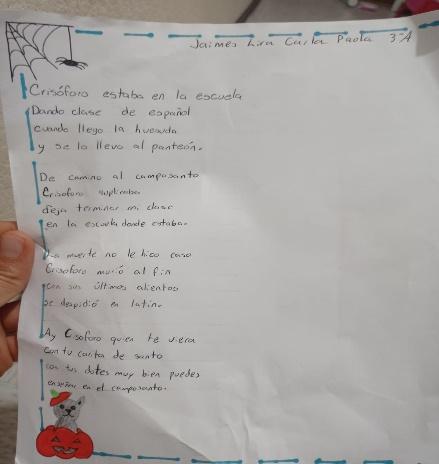 Jaimes Lira Carla Paola 3°A
Crisóforo estaba en la escuela
Dando clase de español
cuando llego la huesuda
y se lo llevo al panteón.
De camino al camposanto
Crisoforo suplicaba
deja terminar mi clase
en la escuela donde estaba.
La muerte no le hizo caso
Crisoforo murió al fin
con sus últimos alientos
se despidió en latin.
Ay Crisoforo quien te viera
Con tu carita de santo
con tus dotes muy bien puedes
enseñar en el camposanto.